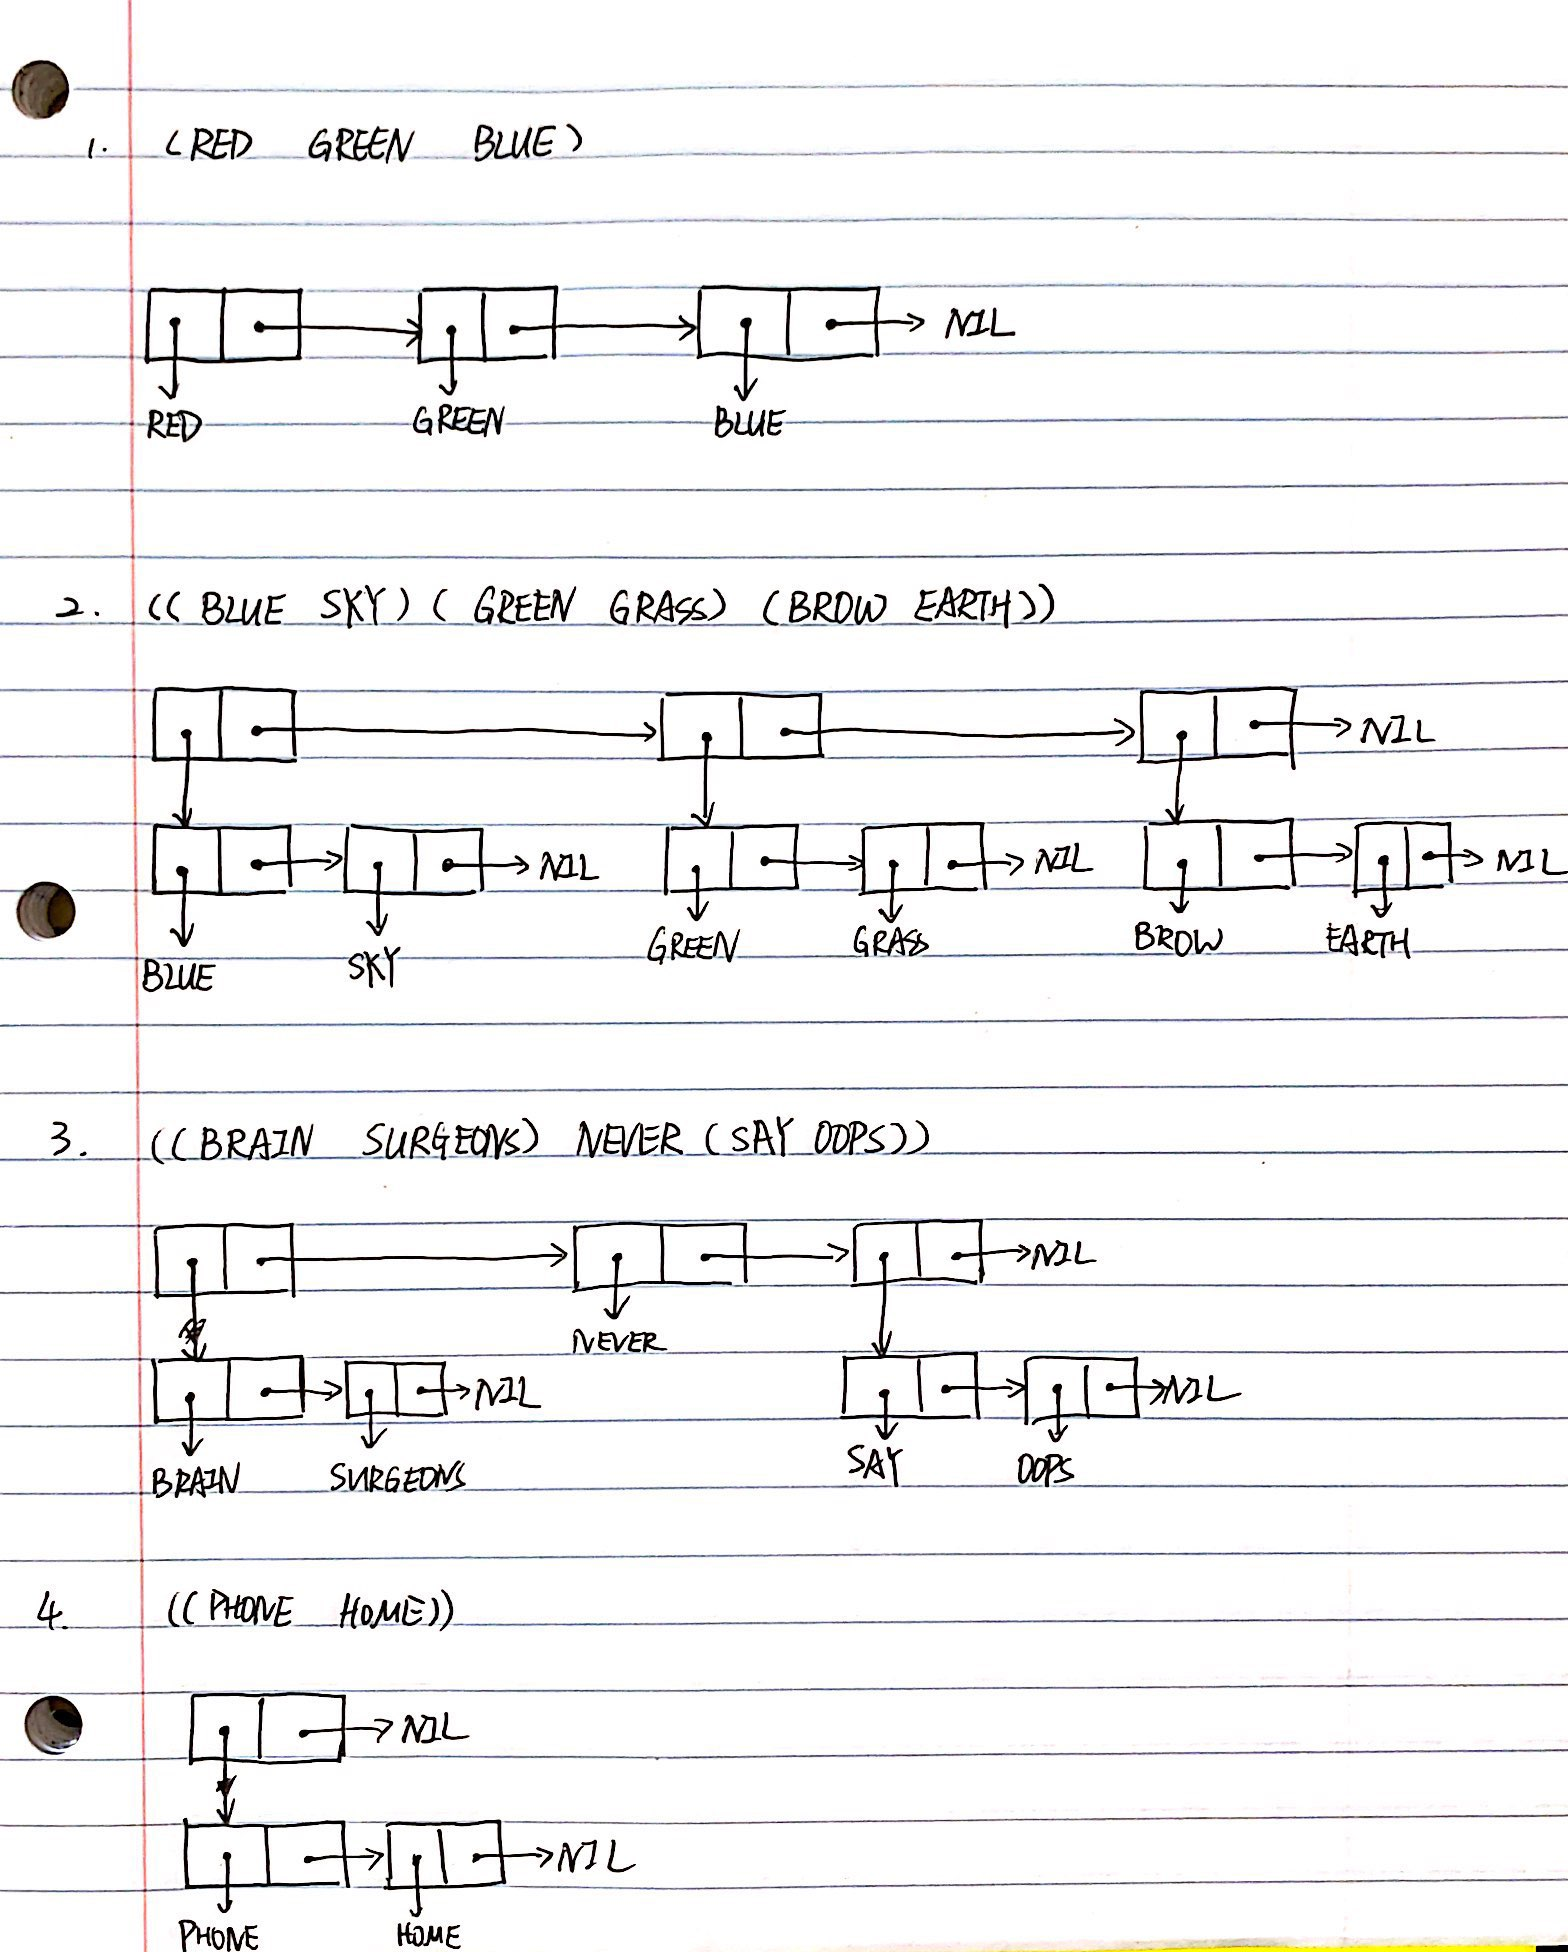 1. (RED GREEN BLUE)
NIL
RED GREEN BLUE
2. ((BLUE SKY) (GREEN GRASS) (BROW EARTH))
NIL
NIL NIL NIL
BLUE SKY GREEN GRASS BROW EARTH
3. ((BRAIN SURGEONS) NEVER (SAY OOPS))
NIL
NEVER
NIL NIL
BRAIN SURGEONS SAY OOPS
4. ((PHONE HOME))
NIL
NIL
PHONE HOME